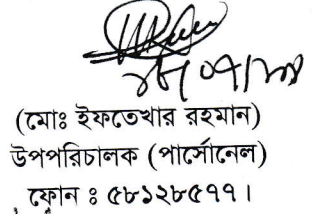 (মোঃ ইফতেখার রহমান)
উপপরিচালক (পার্সোনেল)
ফোন ঃ ৫৮১২৮৫৭৭।